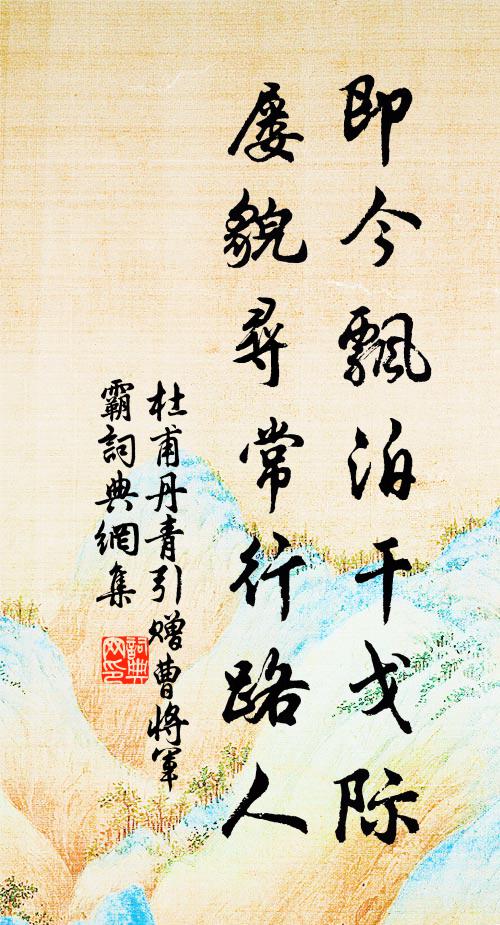 即今飘泊干戈际
屡貌尋常行路人
杜甫丹青引赠曹將军
霸詞典網集
詞典网印